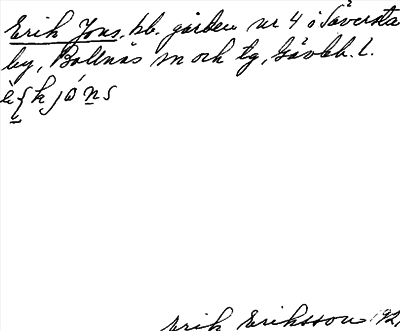 Erik Jons, hb. gården nr 4 i Säversta
by, Bollnäs sn och tg, Gävleb. l.
Erik Eriksson 192